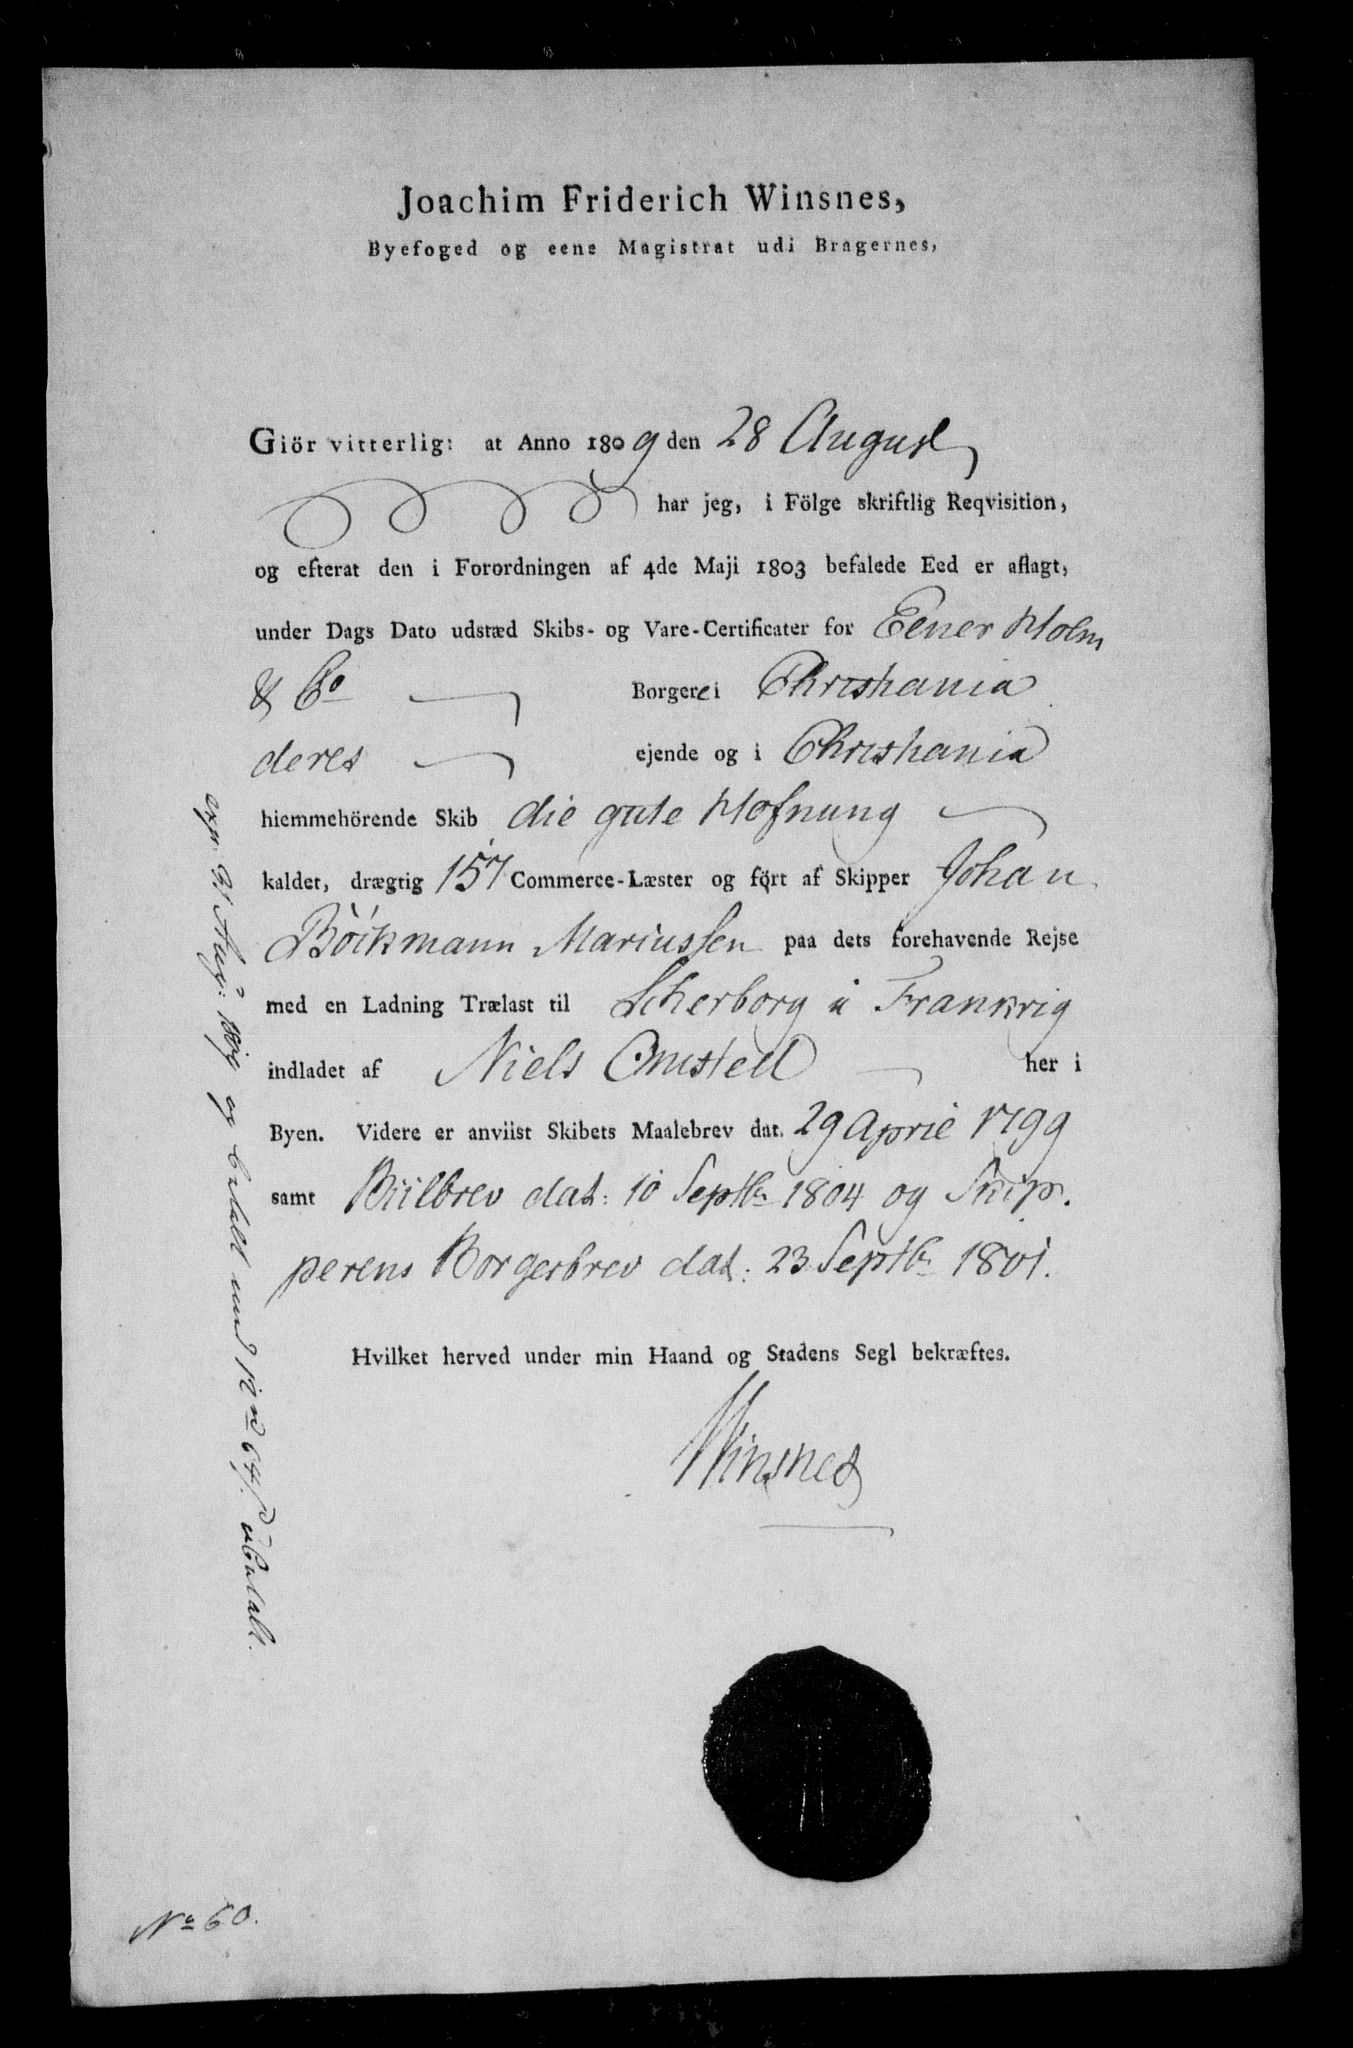 Joachim Friderich Winsnes,
Byefoged og eene Magistrat udi Bragernes,
Giör vitterlig: at Anno 1809 den 28 August
har jeg, i Fölge skriftlig Reqvisition,
og efterat den i Forordningen af 4de Maji 1803 befalede Eed er aflagt,
under Dags Dato udstæd Skibs- og Vare-Certificater for Eener Holm
& Co Borgere i Christiania
deres ejende og i Christiania
hiemmehörende Skib die gute Hofnung
kaldet, drægtig 157 Commerce-Læster og fört af Skipper Johan
Böckmann Mariussen paa dets forehavende Rejse
med en Ladning Trælast til Scherborg i Frankrig
indladet af Niels Omsted her i
Byen. Videre er anviist Skibets Maalebrev dat. 29 Aprie 1799
samt Biilbrev dat: 10 Septbr 1804 og Skip-
perens Borgerbrev dat: 23 Septbr 1801.
Hvilket herved under min Haand og Stadens Segl bekræftes.
Winsnes
exp: 31 Aug: 1809 og betalt med 12 rd 64 s
No 60.